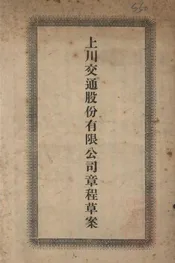 上川交通股份有限公司章程草案